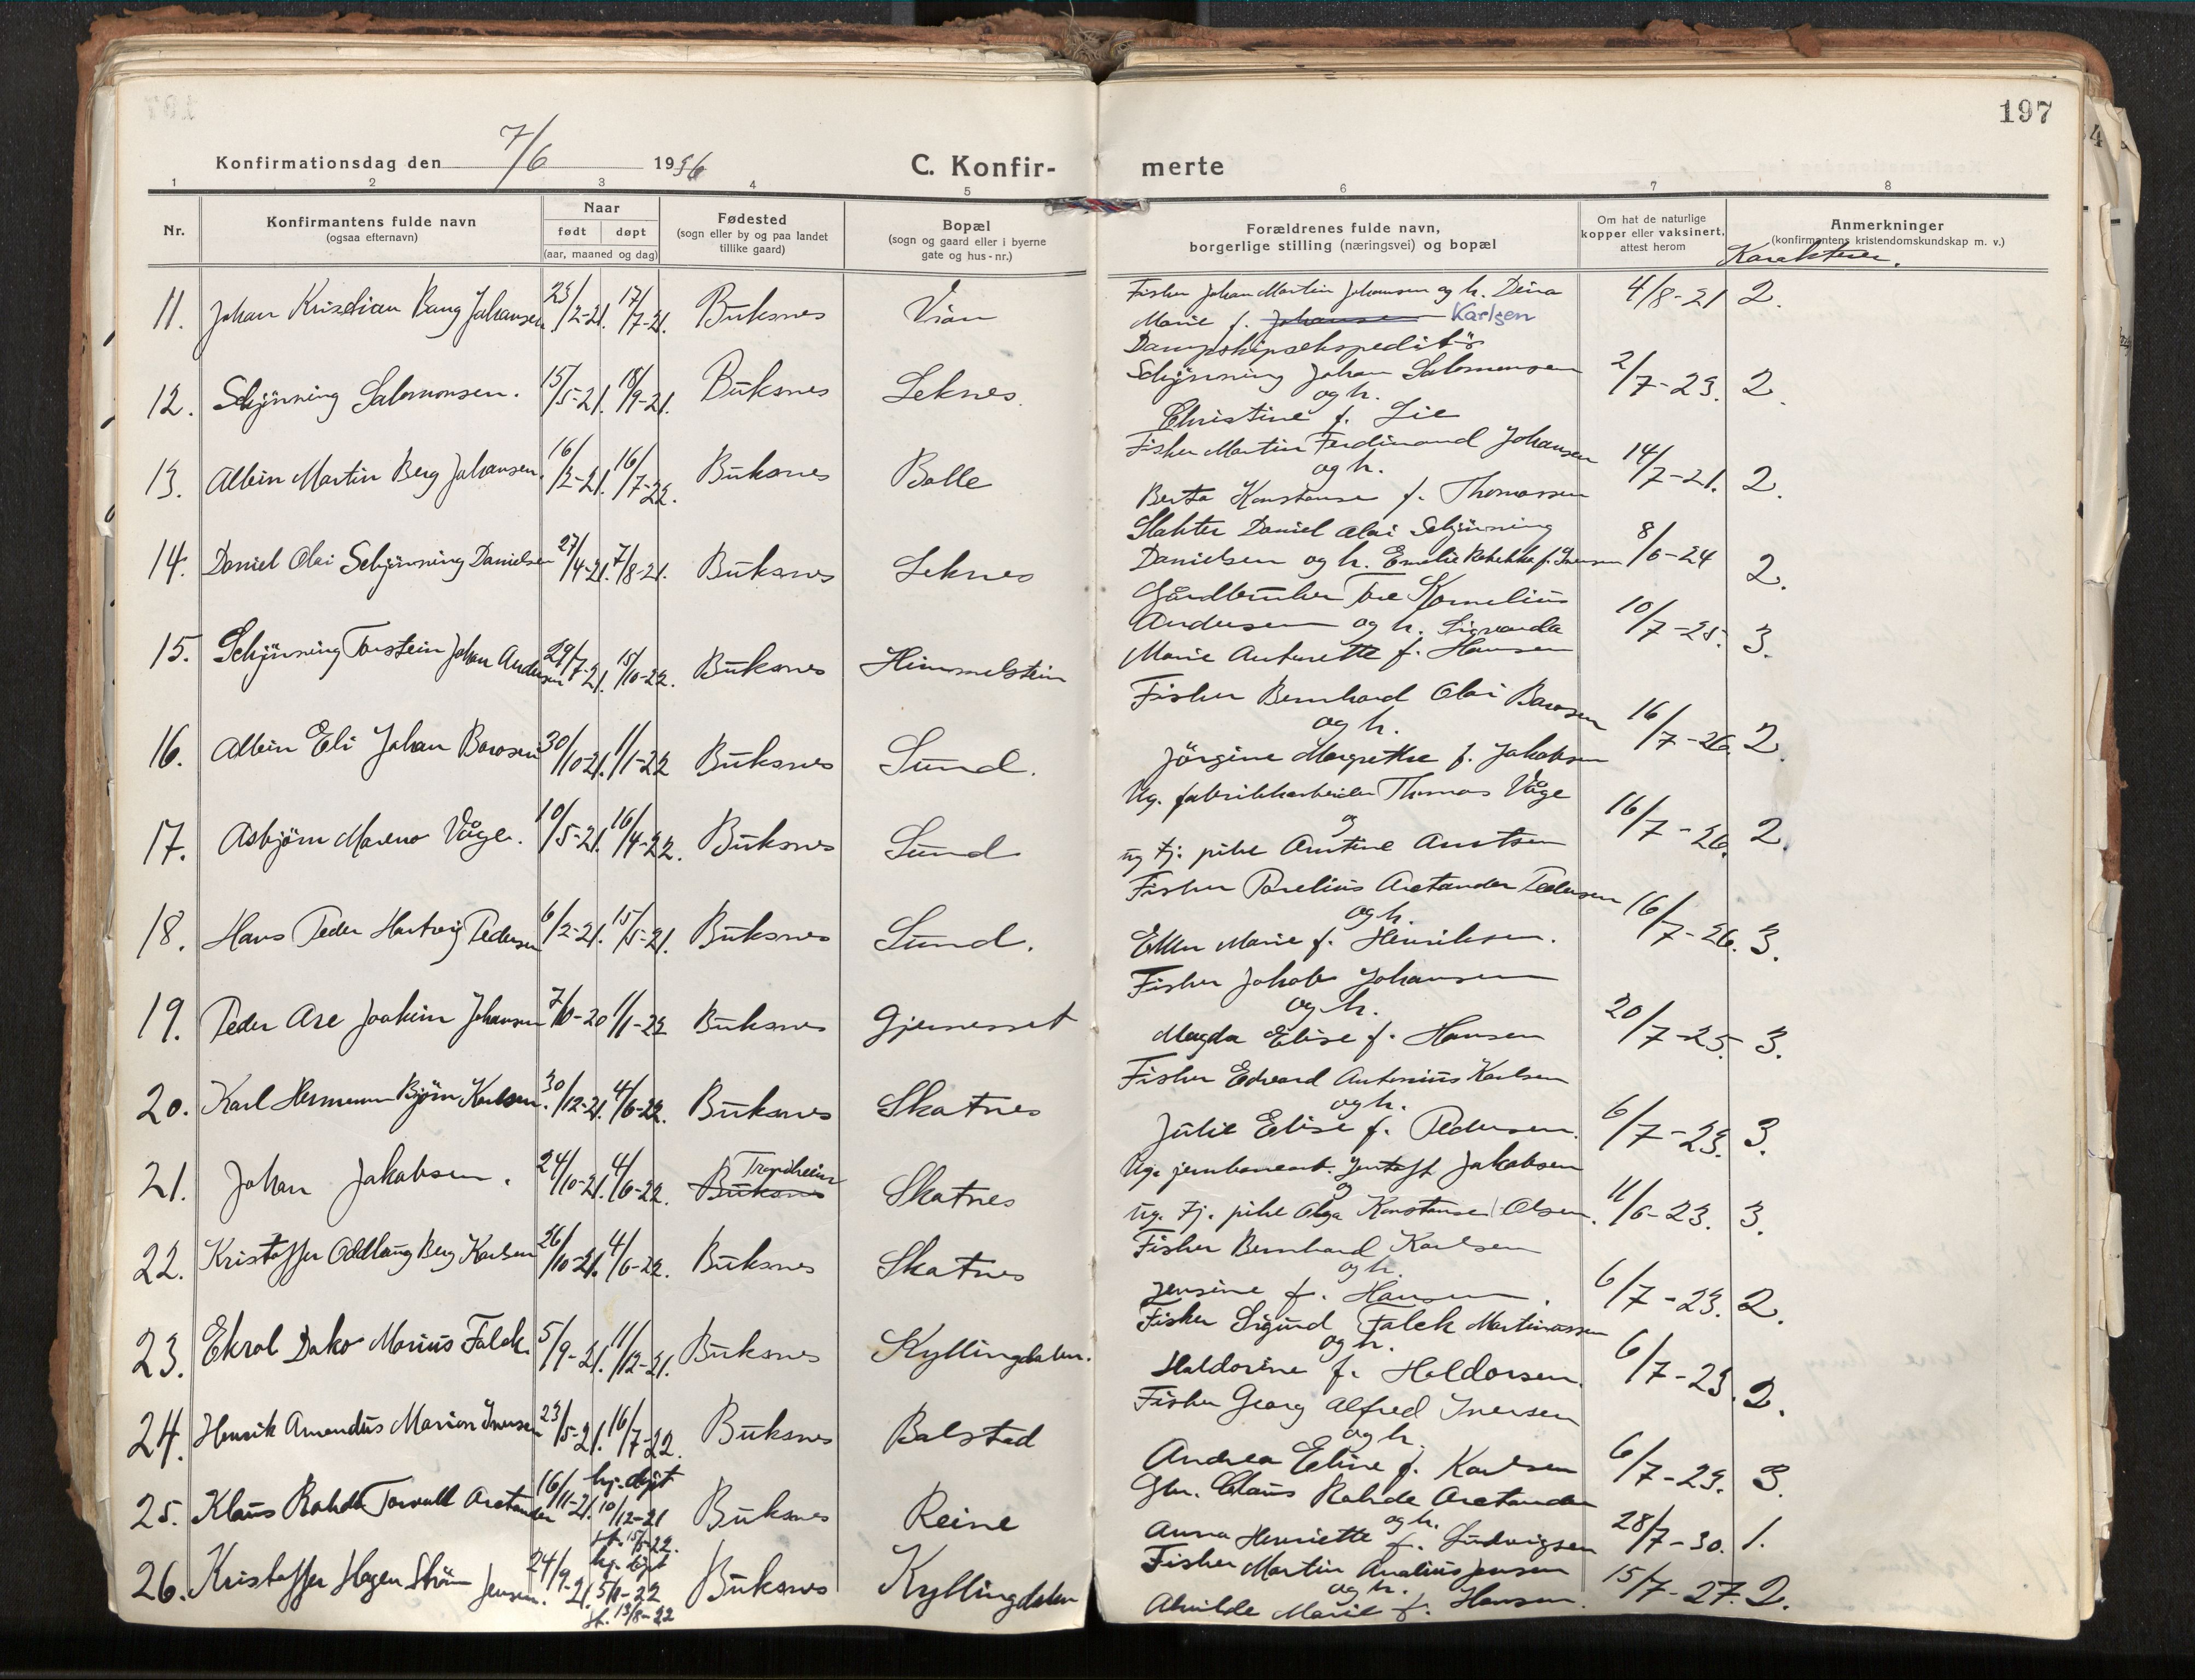 197
Konfirmationsdag den 7/6 1936
C. Konfir-
merte
1 2 3 4 5 6 7 8
Nr.
Konfirmantens fulde navn
(ogsaa efternavn)
Naar
født døpt
(aar, maaned og dag)
Fødested
(sogn eller by og paa landet
tillike gaard)
Bopæl
(sogn og gaard eller i byerne
gate og hus-nr.)
Forældrenes fulde navn,
borgerlige stilling (næringsvei) og bopæl
Om hat de naturlige
kopper eller vaksinert,
attest herom
Anmerkninger
(konfirmantens kristendomskundskap m. v.)
Karakterer.
11. Johan Kristian Bang Johansen 23/2-21. 17/7-21. Buksnes Vian
Fisker Johan Martin Johansen og h. Dina
Marie f. Johansen Karlsen
4/8-21 2.
12. Schjönning Salomonsen. 15/5-21. 18/9-21. Buksnes Leknes.
Dampskipsekspeditör
Schjönning Johan Salomonsen
og h.
Christine f. Lie
2/7-23. 2.
13. Albin Martin Berg Johansen. 16/2-21. 16/7-22. Buksnes Bolle
Fisker Martin Ferdinand Johansen
og h.
Berta Konstanse f. Thomassen
14/7-21. 2.
14. Daniel Olai Schjönning Danielsen 27/4-21. 7/8-21. Buksnes Leknes
Slakter Daniel Olai Schjönning
Danielsen og h. Emelie Rebekka f. Iversen
8/6-24 2.
15. Schjönning Torstein Johan Andersen 29/7-21. 15/10-22. Buksnes Himmelstein
Gårdbruker Tore Kornelius
Andersen og h. Sigvarda
Marie Antonette f. Hansen
10/7-25. 3.
16. Albin Eli Johan Barosen 30/10-21. 1/1-22 Buksnes Sund.
Fisker Bernhard Olai Barosen
og h.
Jörgine Margrethe f. Jakobsen
16/7-26. 2.
17. Asbjörn Mareno Våge. 10/5-21. 16/4-22. Buksnes Sund
Ug. fabrikkarbeider Thomas Våge
og
ug tj. pike Arntine Arntsen
16/7-26. 2.
18. Hans Peder Hartvig Pedersen 6/2-21. 15/5-21. Buksnes Sund.
Fisker Parelius Aretander Pedersen
og h.
Ellen Marie f. Henriksen.
16/7-26. 3.
19. Peder Are Joakim Johansen 7/10-20 1/1-22 Buksnes Gjernesset
Fisker Jakob Johansen
og h.
Magda Elise f. Hansen
20/7-25. 3.
20. Karl Hermann Bjørn Karlsen. 30/12-21. 4/6-22. Buksnes Skotnes
Fisker Edvard Antonius Karlsen
og h.
Julie Elise f. Pedersen.
6/7-23. 3.
21. Johan Jakobsen. 24/10-21. 4/6-22. Trondheim
Buksnes Skotnes
Ug. jernbanearb. Gustaff Jakobsen
og
ug. tj. pike Olga Konstanse Olsen.
11/6-23. 3.
22. Kristoffer Oddlaug Berg Karlsen 26/10-21. 4/6-22. Buksnes Skotnes
Fisker Bernhard Karlsen
og h.
Jensine f. Hansen.
6/7-23. 2.
23. Ekrol Dako Marius Falck. 5/9-21. 11/12-21. Buksnes Kyllingdalen.
Fisker Sigurd Falck Martinussen
og h.
Haldorine f. Haldorsen.
6/7-23. 2.
24. Henrik Amandus Marion Iversen 23/5-21. 16/7-22. Buksnes Balstad
Fisker Georg Alfred Iversen
og h.
Andrea Eline f. Karlsen
6/7-23. 3.
25. Klaus Rohde Torvall Aretander 16/11-21. hj. döpt
10/12-21
st. 15/5-22. Buksnes Reine
Gbr. Claus Rohde Aretander
og h.
Anna Henriette f. Ludvigsen
28/7-30. 1.
26. Kristoffer Hagen Ström Jensen. 24/9-21. hj. döpt
5/1-22
st. 13/8-22 Buksnes Kyllingdalen
Fisker Martin Analius Jensen
og h.
Alvilde Marie f. Hansen.
15/7-27. 2.